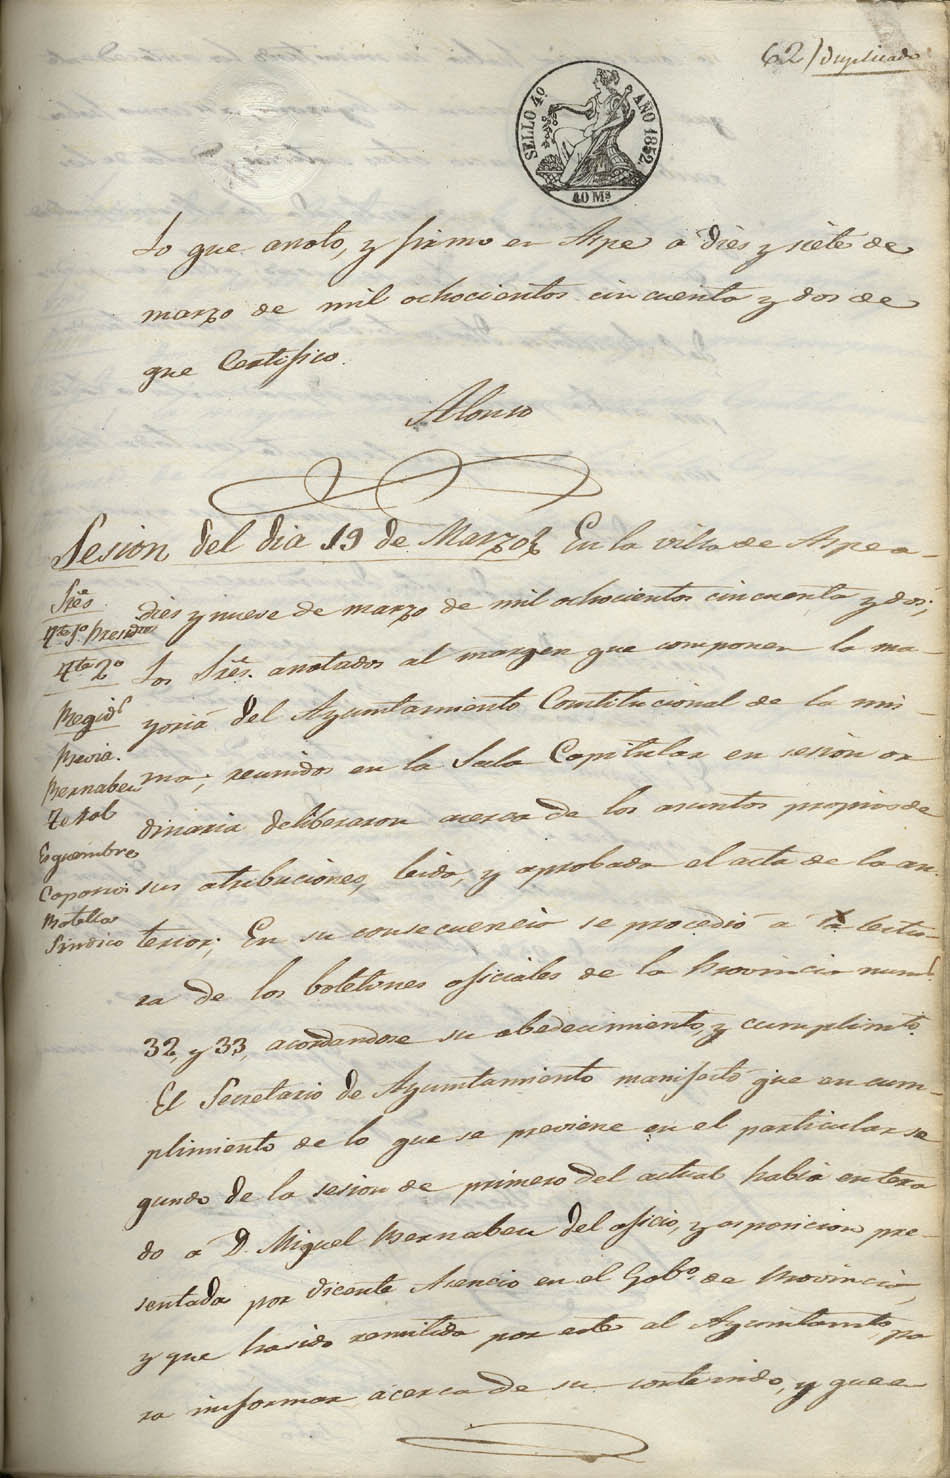 62/duplicado
SELLO 4º AÑO 1852
40 Ms
Lo que anoto, y firmo en Aspe a dies y siete de
marzo de mil ochocientos cincuenta y dos de
que Certifico.
Alonso
Sesion del dia 19 de Marzo En la villa de Aspe a
dies y nueve de marzo de mil ochocientos cincuenta y dos;
Los Sres. anotados al margen que componen la ma-
yoria del Ayuntamiento Constitucional de la mis-
ma, reunidos en la Sala Capitular en sesion or
dinaria deliberaron acerca de los asuntos propios de
sus atribuciones, leida, y aprobada el acta de la an-
terior; En su consecuencia se procedió á la lectu-
ra de los boletines oficiales de la Provincia num.s
32, y 33, acordandose su obedecimiento, y cumplimto.
El Secretario de Ayuntamiento manifestó que en cum-
plimiento de lo que se previene en el particular se
gundo de la sesion de primero del actual habia entera
do a D. Miguel Bernabeu del oficio, y esposicion pre-
sentada por Vicente Asencio en el Gobº. de Provincia,
y que ha sido remitida por este al Ayuntamto, pa
ra informar acerca de su contenido, y que a
Sres
Tte 1º Presidte
Tte 2º
Regids
Bernabeu
Esquembre
Caparros
Botella
Sindico